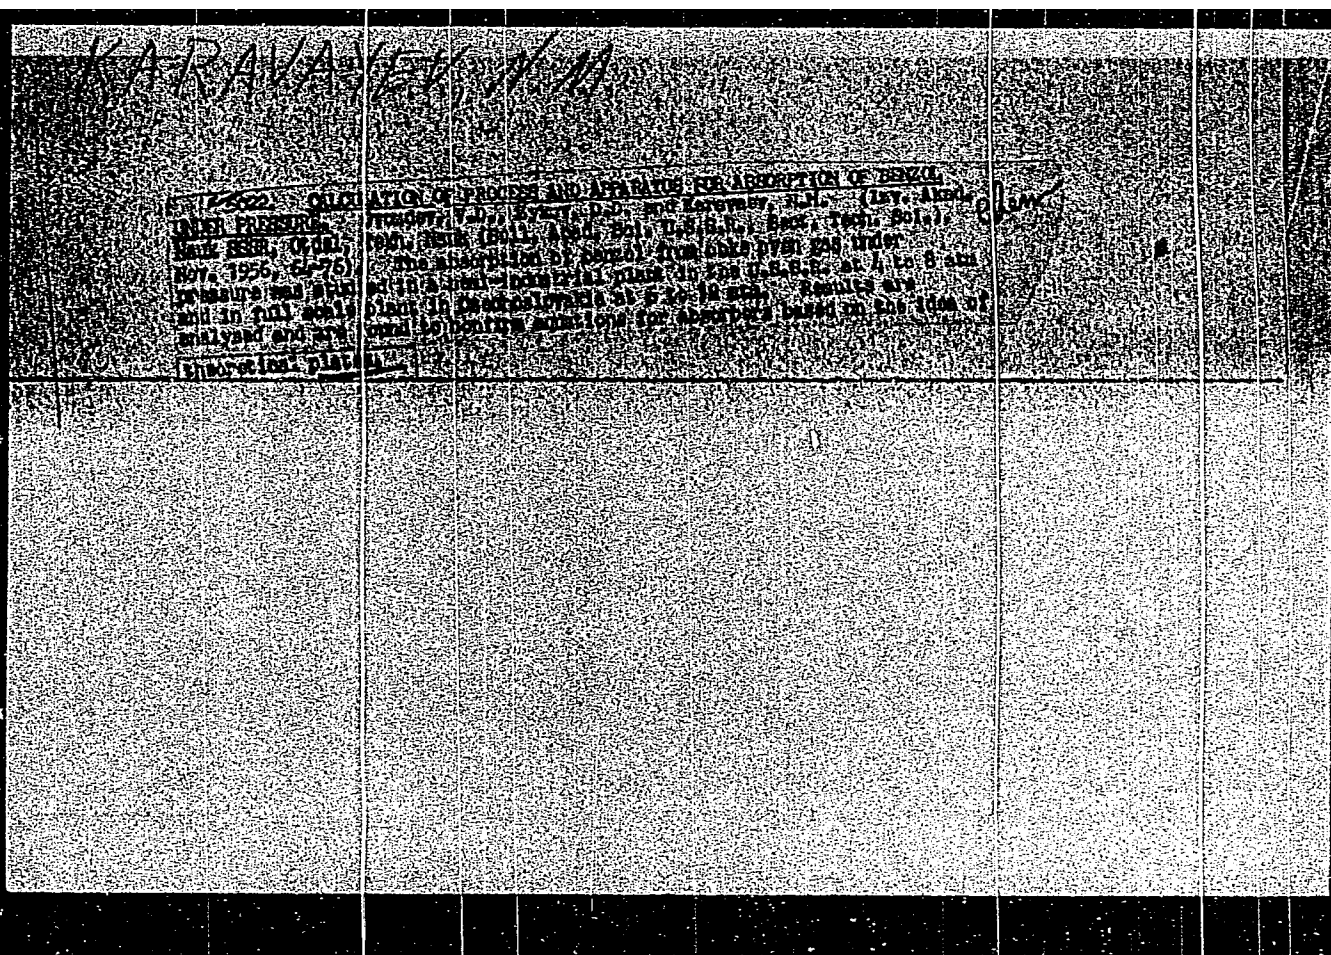 KARAVAYEV, N.M.
CALCULATION OF PROCESS AND APPARATUS FOR ABSORPTION OF BENZOL
UNDER PRESSURE. V.D., D.D. and Karavaev, N.M. (Izv. Akad.
Nauk SSSR, Otdel. Tekh. Nauk (Bull. Acad. Sci. U.S.S.R., Sect. Tech. Sci.),
Nov. 1956, 64-76). The absorption of benzol from coke oven gas under
pressure was studied in a semi-industrial plant in the U.S.S.R. at 4 to 8 atm
and in full scale plant in Czechoslovakia at 6 to 12 atm. Results are
analysed and are found to confirm equations for absorbers based on the idea of
theoretical plates.
Chem